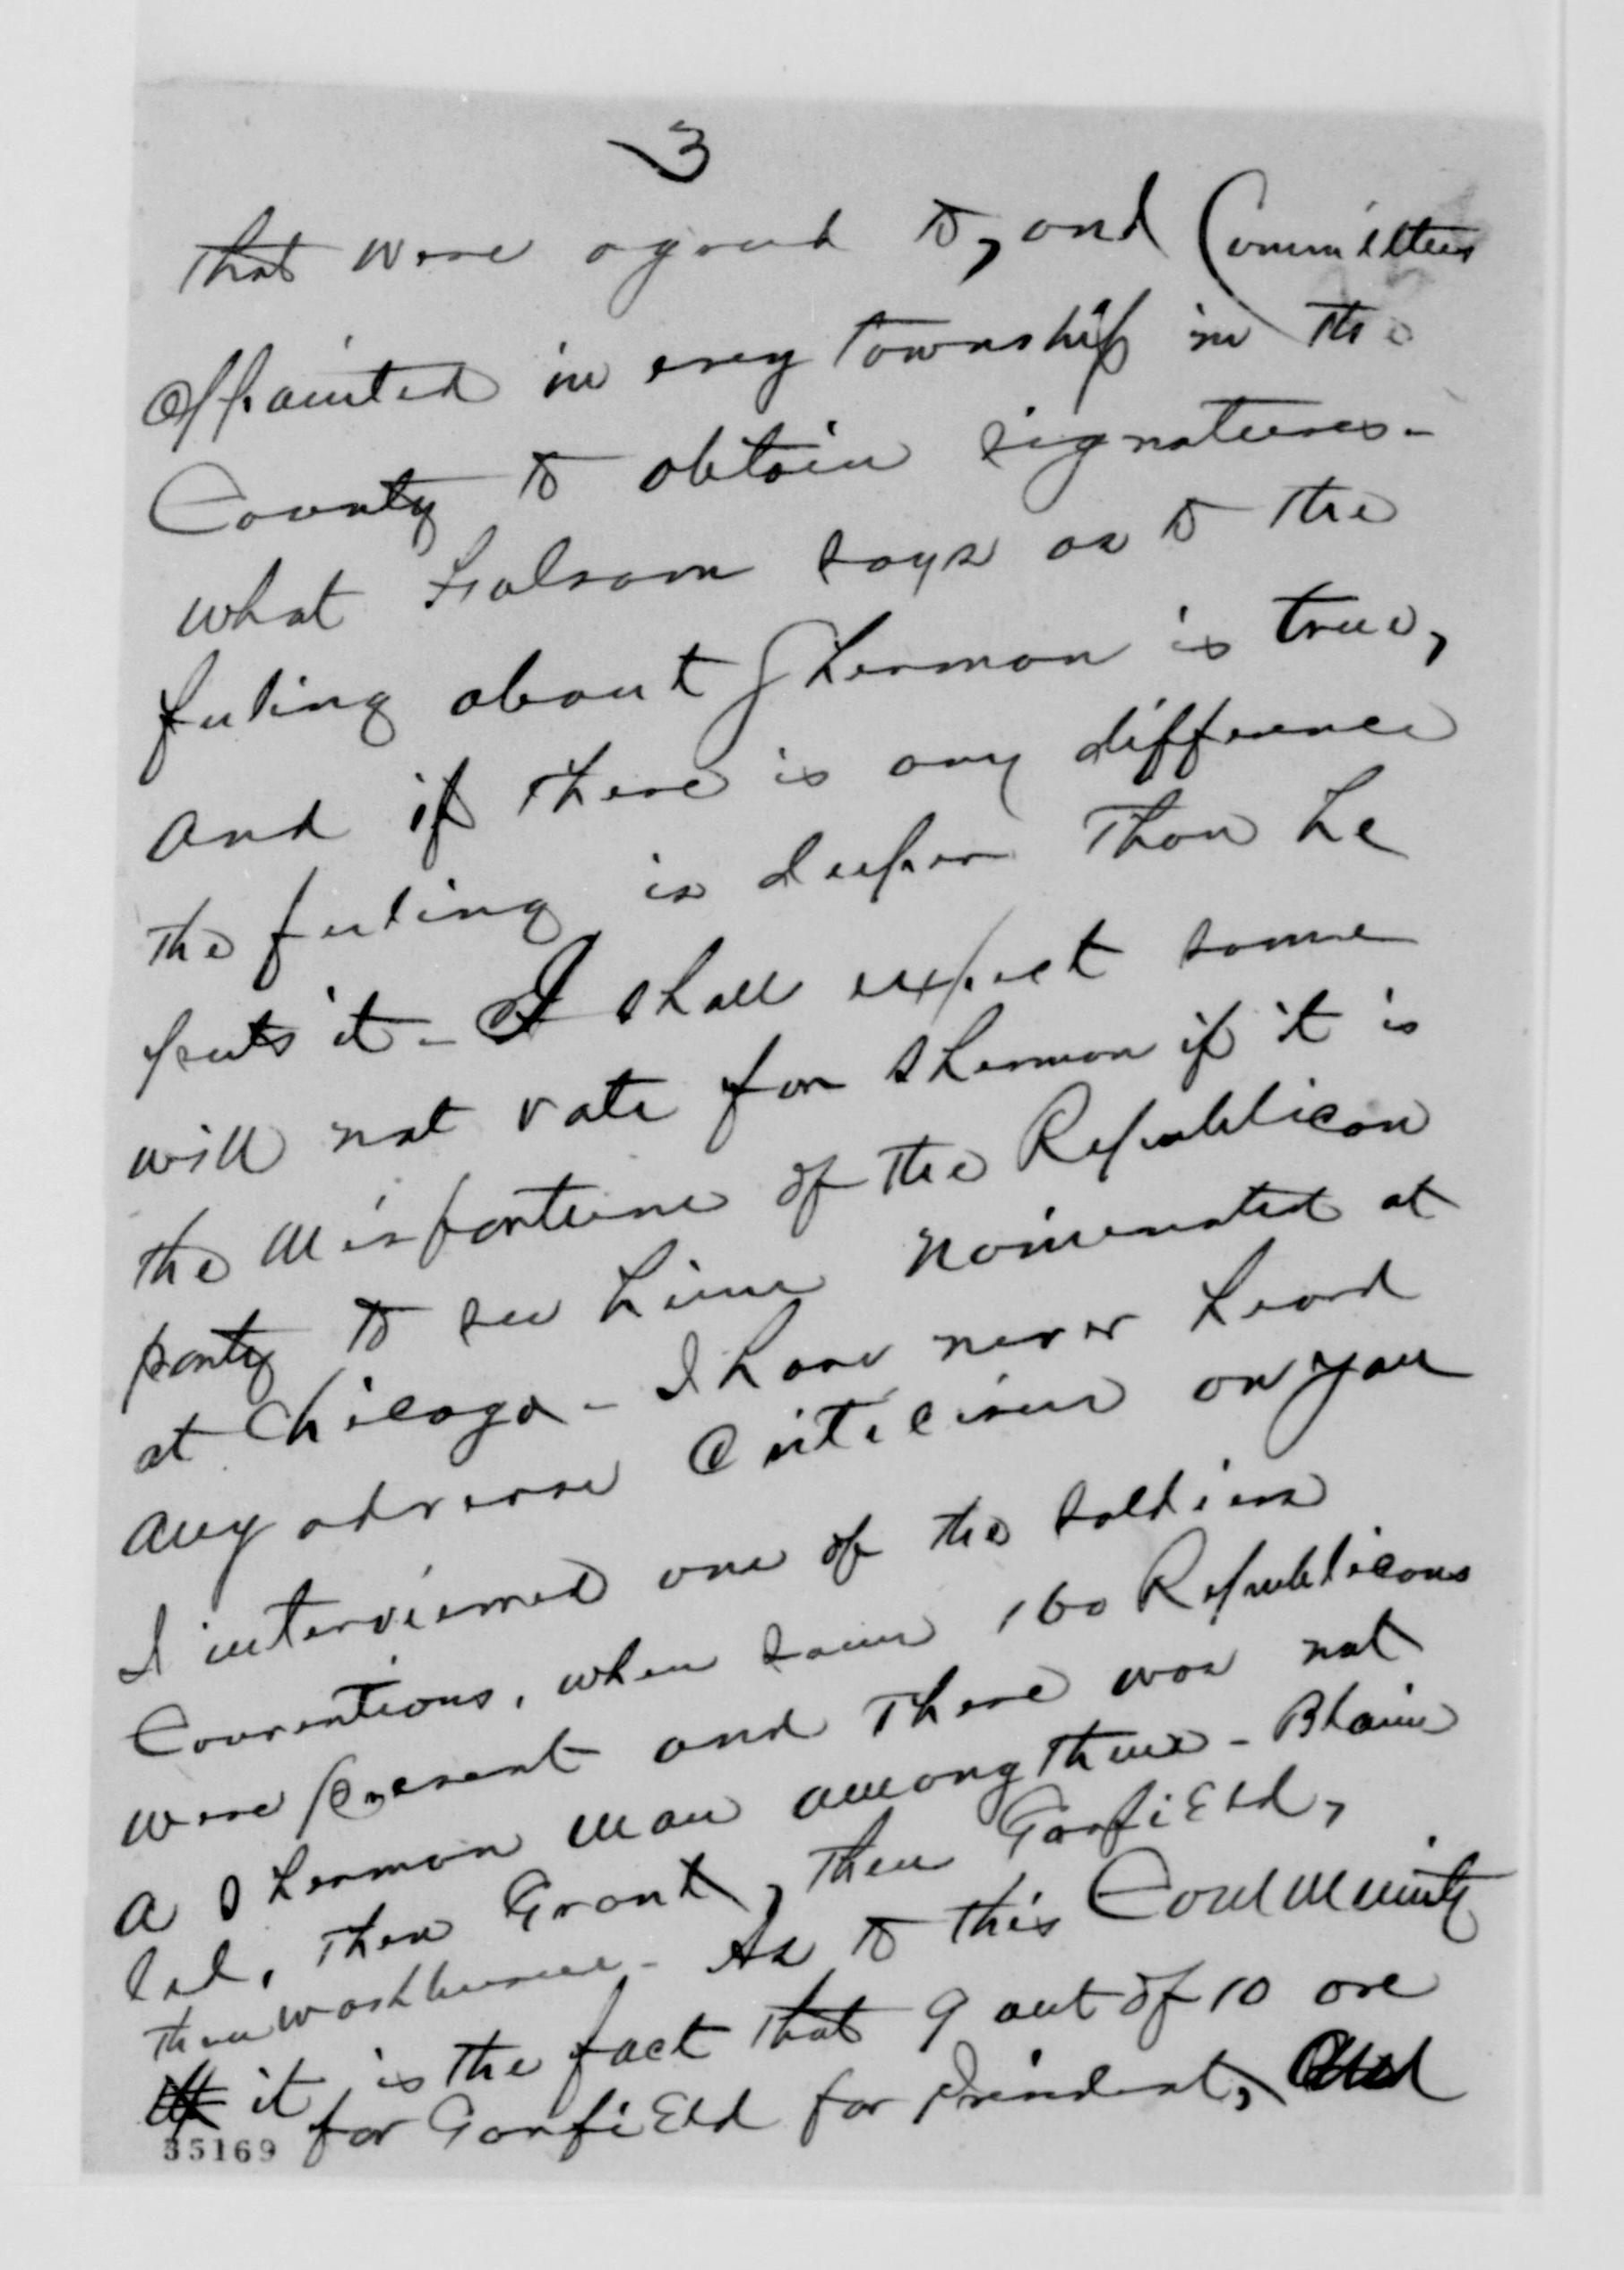 3
that were agreed to, and Committees
appointed in every Township in the
County to obtain signatures.
what Folsom says as to the
feeling about Sherman is true,
and if there is any difference
the feeling is deeper than he
puts it - I shall expect some
will not vote for Sherman if it is
the misfortune of the Republican
party to see him nominated at
at Chicago - I have never heard
any adverse Criticism on you
I interviewed one of the soldiers
Conventions, when some 160 Republicans
were present and there was not
a Sherman man among them - Blaine
led, then Grant, then Garfield,
then Washburne - As to this Community
it is the fact that 9 out of 10 are
for Garfield for President, and
35169